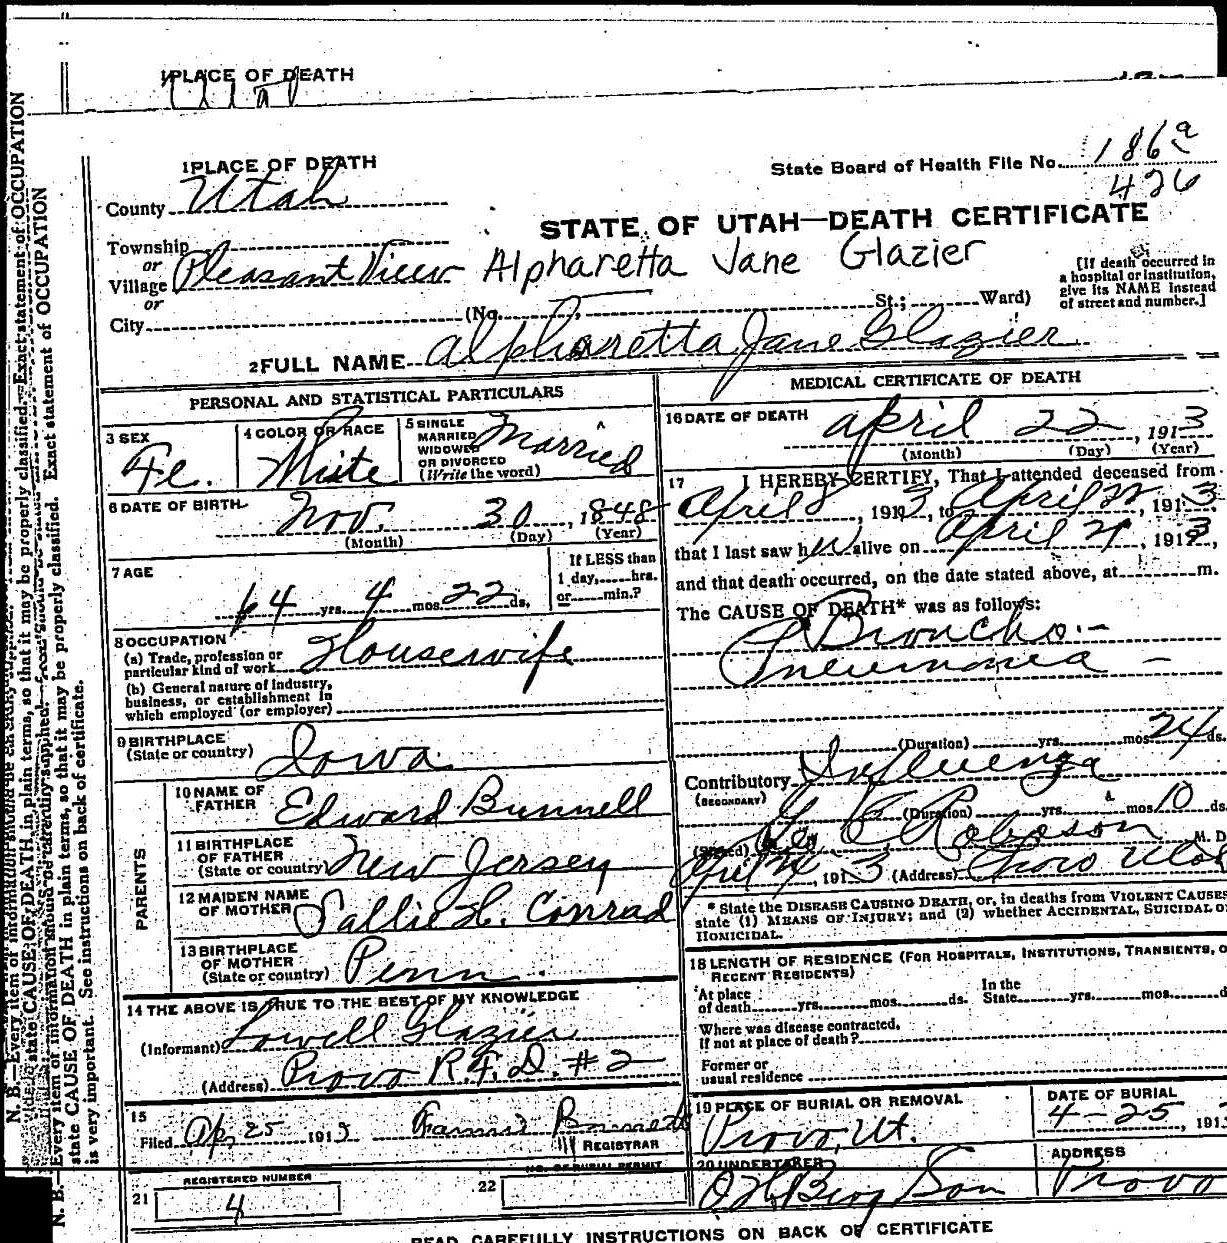 1 PLACE OF DEATH
1 PLACE OF DEATH
State Board of Health File No. 186a
426
County Utah
STATE OF UTAH—DEATH CERTIFICATE
Township
or
Village Pleasant View
Alpharetta Jane Glazier
[If death occurred in
a hospital or institution,
give its NAME instead
of street and number.]
or
City (No. St.; Ward)
2 FULL NAME Alpharetta Jane Glazier
PERSONAL AND STATISTICAL PARTICULARS
3 SEX
Fe.
4 COLOR OR RACE
White
5 SINGLE
MARRIED
WIDOWED
OR DIVORCED
(Write the word)
Married
6 DATE OF BIRTH
Nov. 30, 1848
(Month) (Day) (Year)
7 AGE
64 yrs. 4 mos. 22 ds.
If LESS than
1 day, hrs.
or min.?
8 OCCUPATION
(a) Trade, profession or
particular kind of work Housewife
(b) General nature of industry,
business, or establishment in
which employed (or employer)
9 BIRTHPLACE
(State or country) Iowa
PARENTS
10 NAME OF
FATHER Edward Bunnell
11 BIRTHPLACE
OF FATHER
(State or country) New Jersey
12 MAIDEN NAME
OF MOTHER Sallie H. Conrad
13 BIRTHPLACE
OF MOTHER
(State or country) Penn.
14 THE ABOVE IS TRUE TO THE BEST OF MY KNOWLEDGE
(Informant) Lowell Glazier
(Address) Provo R.F.D. #2
15
Filed Ap 25 1913
REGISTRAR
21 REGISTERED NUMBER
4
22 NO. OF BURIAL PERMIT
MEDICAL CERTIFICATE OF DEATH
16 DATE OF DEATH
April 22, 1913
(Month) (Day) (Year)
17 I HEREBY CERTIFY, That I attended deceased from
April 8, 1913, to April 22, 1913
that I last saw her alive on April 21, 1913,
and that death occurred, on the date stated above, at m.
The CAUSE OF DEATH* was as follows:
Broncho-
Pneumonia —
(Duration) yrs. mos. ds.
Contributory Influenza
(SECONDARY)
(Duration) yrs. mos. 10 ds.
(Signed) Robison M. D
April, 1913 (Address) Provo Utah
* State the DISEASE CAUSING DEATH, or, in deaths from VIOLENT CAUSES
state (1) MEANS OF INJURY; and (2) whether ACCIDENTAL, SUICIDAL O
HOMICIDAL.
18 LENGTH OF RESIDENCE (FOR HOSPITALS, INSTITUTIONS, TRANSIENTS, O
RECENT RESIDENTS)
At place
of death yrs. mos. ds.
In the
State yrs. mos. d
Where was disease contracted,
if not at place of death?
Former or
usual residence
19 PLACE OF BURIAL OR REMOVAL
Provo, Ut.
DATE OF BURIAL
4-25, 191
20 UNDERTAKER
Berg Son
ADDRESS
Provo
READ CAREFULLY INSTRUCTIONS ON BACK OF CERTIFICATE
N. B.—Every item of information should be carefully supplied.
state CAUSE OF DEATH in plain terms, so that it may be properly classified. Exact statement of OCCUPATION
is very important. See instructions on back of certificate.